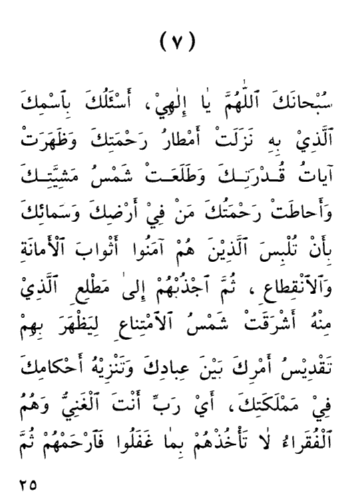 (٧)
سُبْحانَكَ ٱللّٰهُمَّ يٰا إِلٰهِيْ، أَسْئَلُكَ بِٱسْمِكَ
ٱلَّذِيْ بِهِ نَزَلَتْ أَمْطارُ رَحْمَتِكَ وَظَهَرَتْ
آياتُ قُدْرَتِكَ وَطَلَعَتْ شَمْسُ مَشِيَّتِكَ
وَأَحاطَتْ رَحْمَتُكَ مَنْ فِيْ أَرْضِكَ وَسَمائِكَ
بِأَنْ تُلْبِسَ ٱلَّذِيْنَ هُمْ آمَنُوا أَثْوابَ ٱلْأَمانَةِ
وَٱلْاَنْقِطاعِ، ثُمَّ ٱجْذُبْهُمْ إِلىٰ مَطْلِعِ ٱلَّذِيْ
مِنْهُ أَشْرَقَتْ شَمْسُ ٱلاَمْتِناعِ لِيَظْهَرَ بِهِمْ
تَقْدِيْسُ أَمْرِكَ بَيْنَ عِبادِكَ وَتَنْزِيْهُ أَحْكامِكَ
فِيْ مَمْلَكَتِكَ، أَيْ رَبِّ أَنْتَ ٱلْغَنِيُّ وَهُمُ
ٱلْفُقَراءُ لٰا تَأْخُذْهُمْ بِمٰا غَفَلُوا فَٱرْحَمْهُمْ ثُمَّ
٢٥